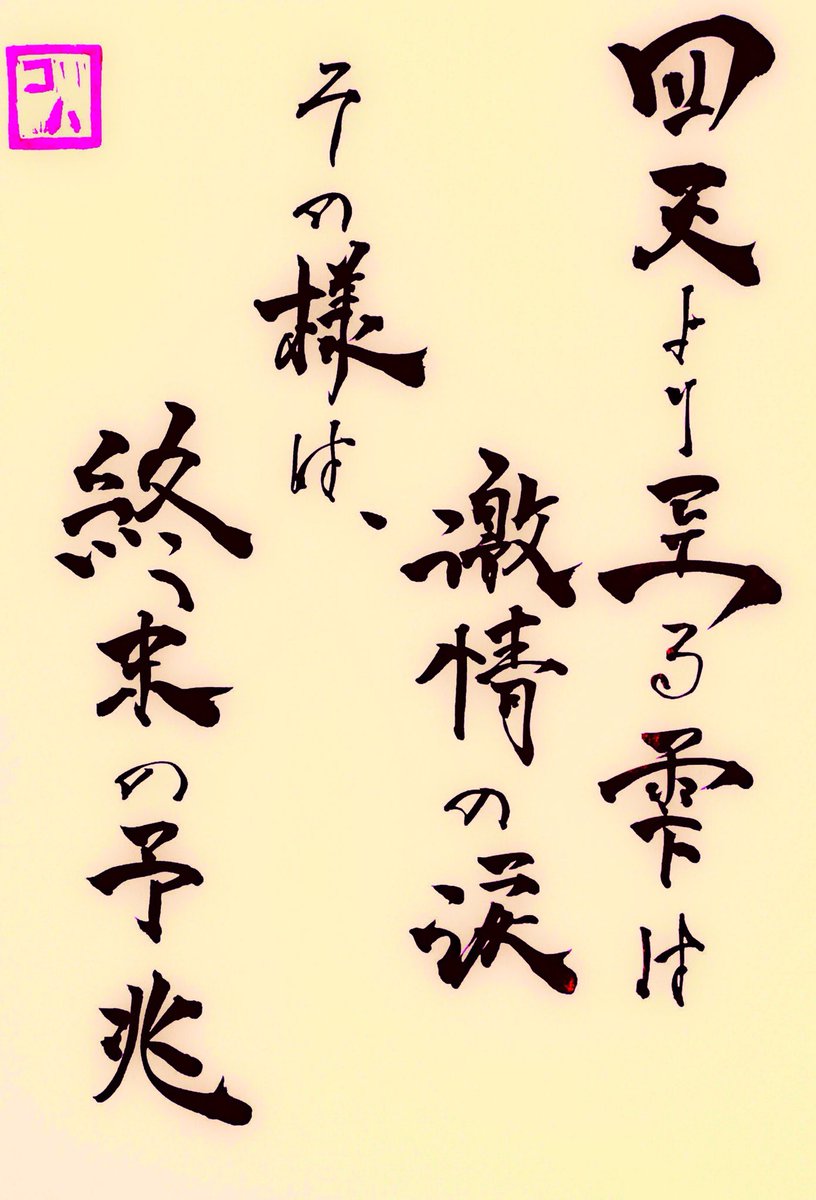 四天より至る雫は
激情の涙
その様は、
終末の予兆